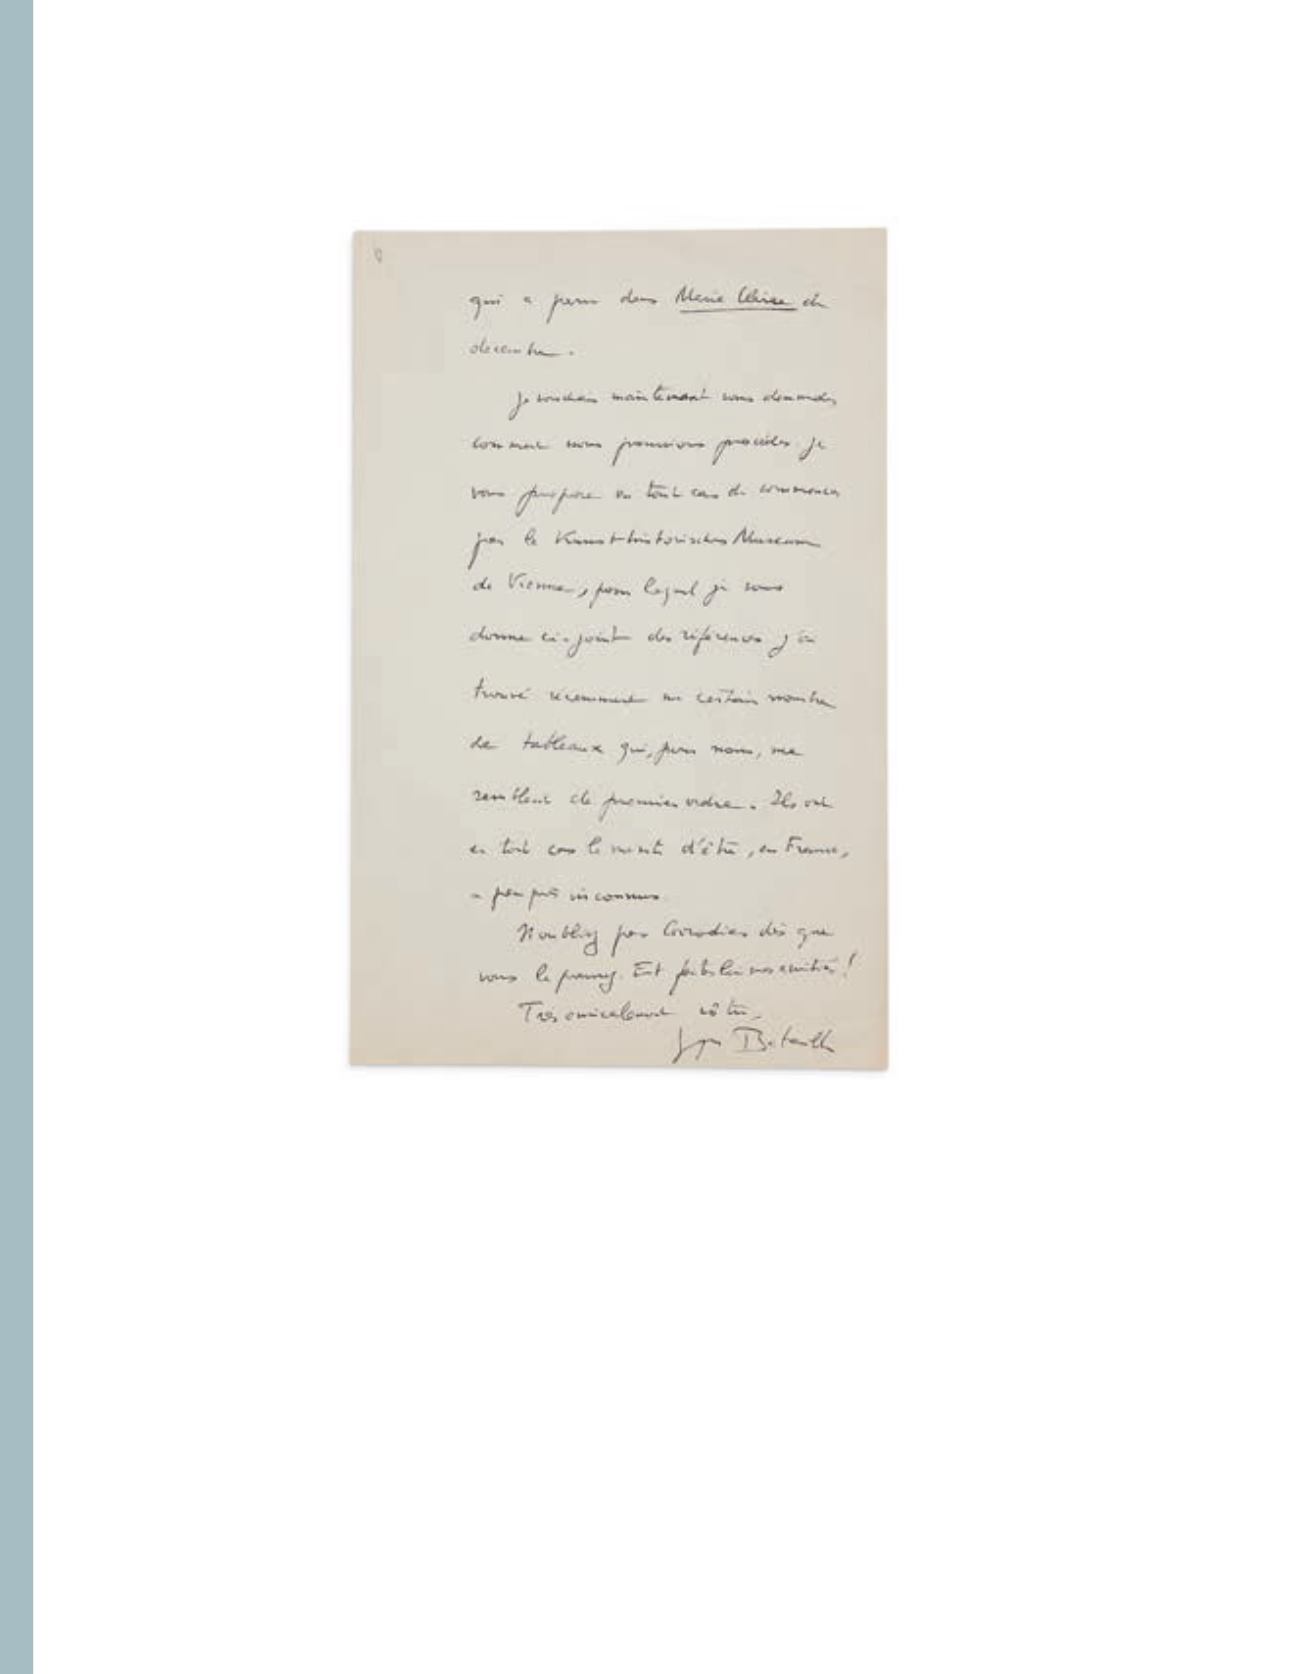 qui a paru dans Marie Claire de
décembre.
Je voudrais maintenant vous demander
comment nous pourrions procéder. Je
vous propose en tout cas de commencer
par le Kunsthistorisches Museum
de Vienne, pour lequel je vous
donne ci-joint des références. J'ai
trouvé récemment un certain nombre
de tableaux qui, pour nous, me
semblent de premier ordre. Ils ont
en tout cas le mérite d'être, en France,
à peu près inconnus.
N'oubliez pas Girodias dès que
vous le pourrez. Et faites lui nos amitiés!
Très amicalement vôtre,
Georges Bataille